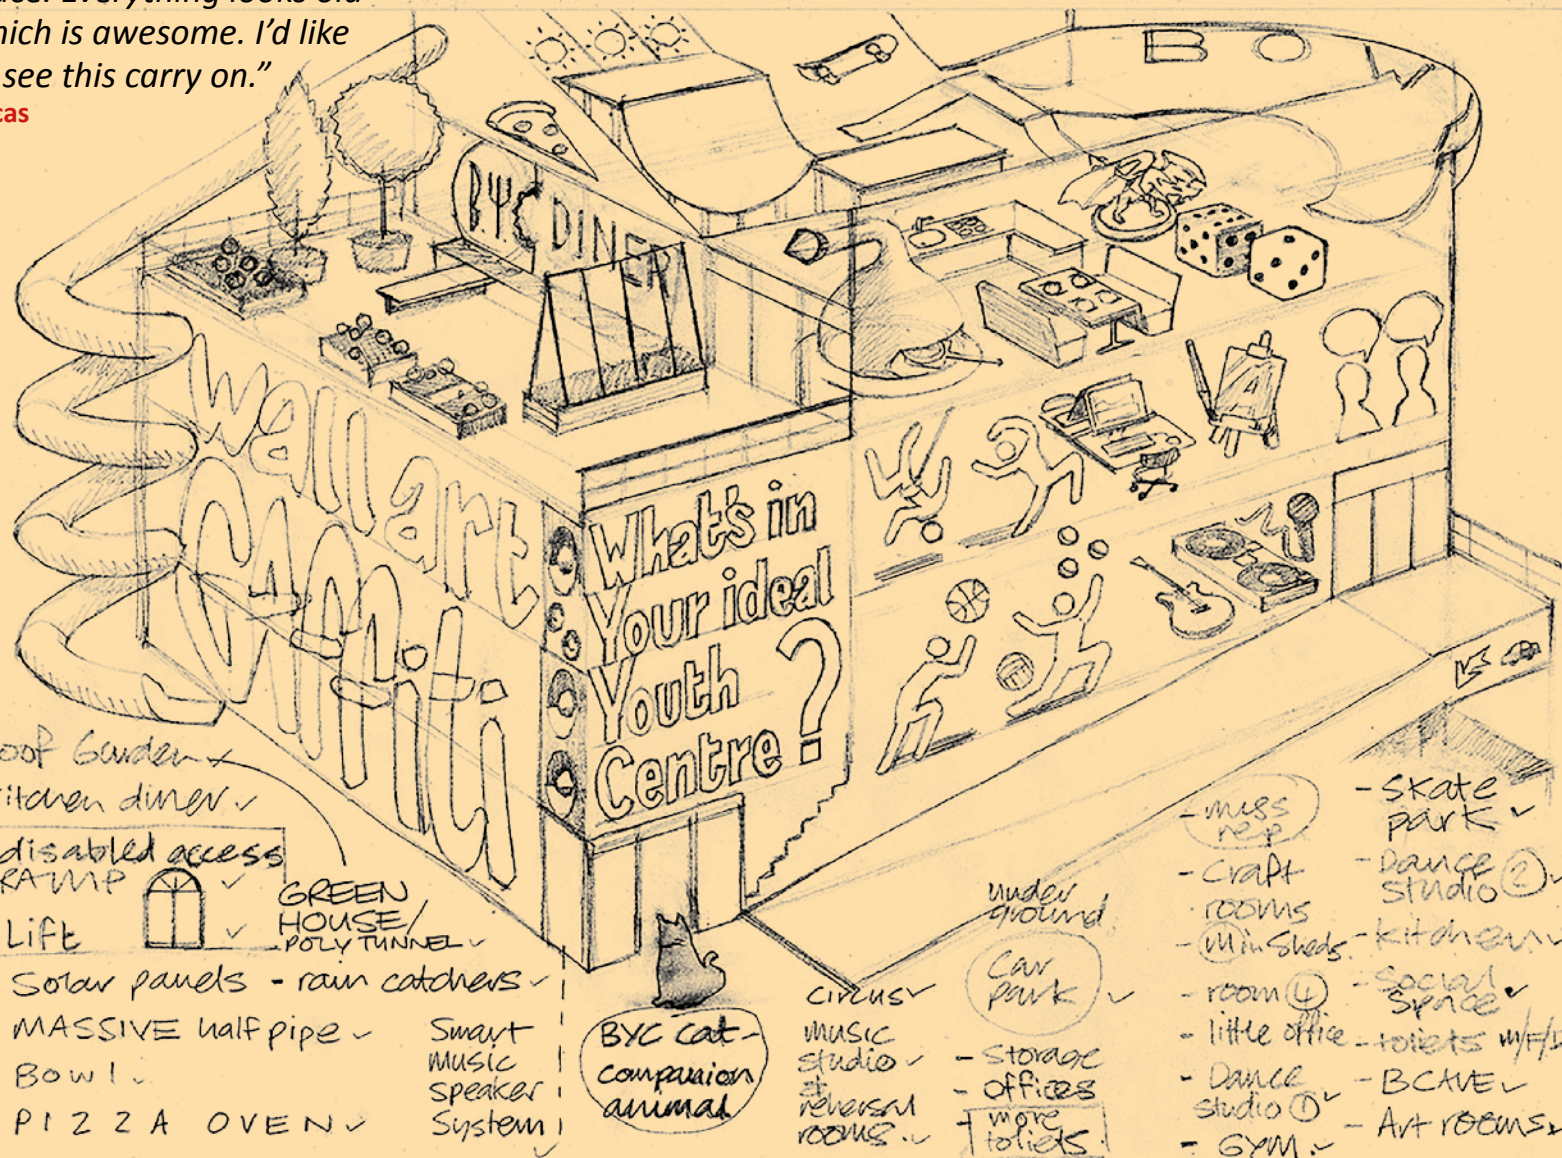 Everything looks old
which is awesome. I'd like
see this carry on."
cas
BO
D
B.Y.C DINER
wall art
Graffiti
What's in
Your ideal
Youth
Centre?
Roof Garden
kitchen diner ✓
disabled access
RAMP ✓
Lift ✓
GREEN
HOUSE/
POLY TUNNEL ✓
Solar panels - rain catchers ✓
MASSIVE halfpipe ✓
Bowl ✓
PIZZA OVEN ✓
Smart
music
speaker
System
BYC cat -
companion
animal
circus ✓
music
studio ✓
&
rehersal
rooms ✓
under
ground
Car
park ✓
- Storage
- offices
- more
toliets
- craft
rooms
- room 4
- little office
- Dance
studio 1 ✓
- GYM ✓
- Skate
park ✓
- Dance
studio 2 ✓
- kitchen ✓
- Social
Space ✓
- toliets M/F/D
- BCAVE ✓
- Art rooms ✓